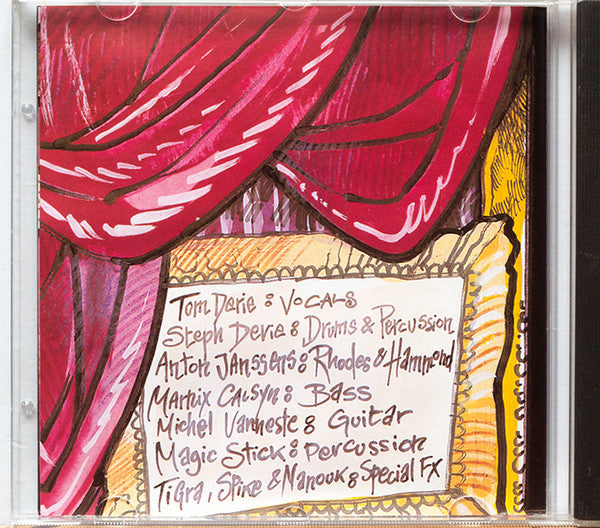 Tom Derie : VOCALS
Steph Derie : Drums & Percussion
Anton Janssens : Rhodes & Hammond
Marnix Calsyn : Bass
Michel Vanneste : Guitar
Magic Stick : percussion
Tigra, Spike & Nanouk : Special FX